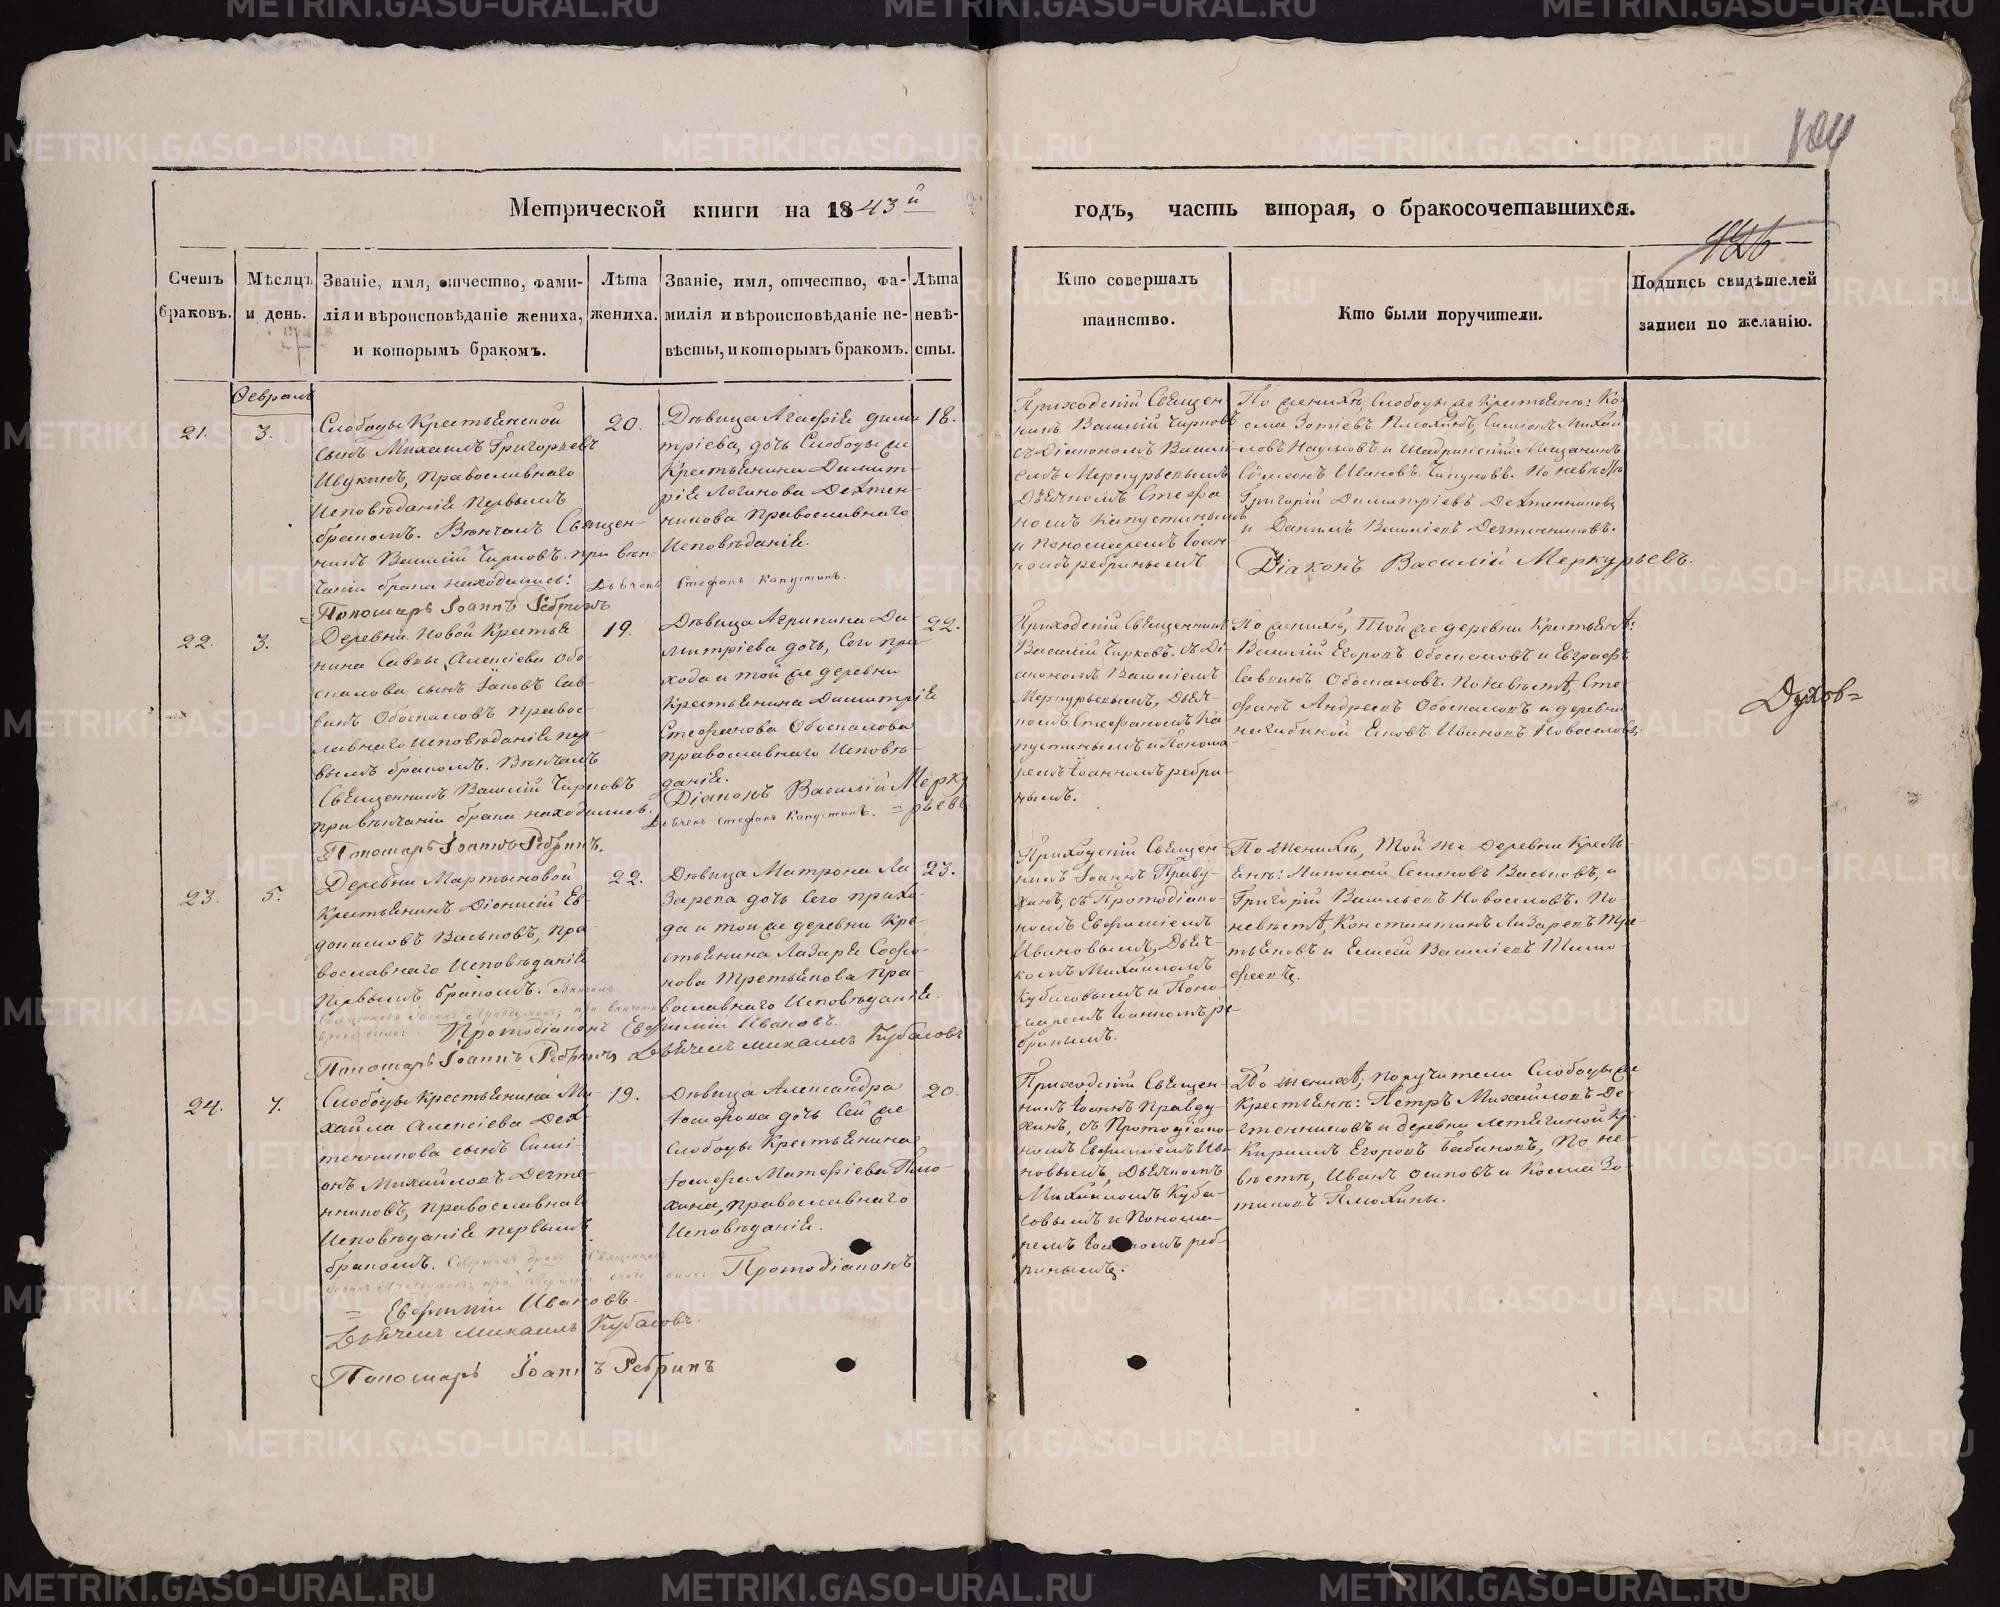 Метрической книги на 1843й
годъ, часть вторая, о бракосочетавшихся.
Счетъ браковъ.
Мѣсяцъ и день.
Званіе, имя, отчество, фами-
лія и вѣроисповѣданіе жениха,
и которымъ бракомъ.
Лѣта
жениха.
Званіе, имя, отчество, фа-
милія и вѣроисповѣданіе не-
вѣсты, и которымъ бракомъ.
Лѣта
невѣ-
сты.
Кто совершалъ
таинство.
Кто были поручители.
Подпись свидѣтелей
записи по желанію.
Февраль
21.
3.
Слободы Крестьянской
сынъ Михаилъ Григорьевъ
Ивукинъ, православнаго
исповѣданія первымъ
бракомъ. Вѣнчалъ Священ-
никъ Василій Чирковъ. при вѣн-
чаніи брака находились:
Пономарь Іоаннъ Ребринъ
20.
Дѣвица Агафія Дими
тріева, дочь Слободы же
Крестьянина Димит-
рія Логинова Дехтен-
никова православнаго
исповѣданія.
Дьячекъ Стефанъ Капустинъ.
18.
Приходскій Священ
никъ Василій Чирковъ
съ Діакономъ Василі-
емъ Меркурьевымъ
Дьячкомъ Стефа
номъ Капустинымъ
и Пономаремъ Іоан-
номъ Ребринымъ
По женихѣ, Слободы же Крестьяне: Ко
сма Зотіевъ Плюхинъ, Симіонъ Михай
ловъ Наумовъ и Шадринскій Мещанинъ
Сѵмеонъ Ивановъ Чипуновъ. По невѣстѣ
Григорій Димитріевъ Дехтенниковъ
и Данилъ Василіевъ Дегтенниковъ.
Діаконъ Василій Меркурьевъ.
22.
3.
Деревни Новой Крестья
нина Саввы Алексіева Обо
спалова сынъ Іаковъ Сав-
винъ Обоспаловъ право-
славнаго исповѣданія пер-
вымъ бракомъ. Вѣнчалъ
Священникъ Василій Чирковъ
при вѣнчаніи брака находились.
Пономарь Іоаннъ Ребринъ.
19.
Дѣвица Агрипина Ди-
митріева дочь, Сего при-
хода и той же деревни
Крестьянина Димитрія
Стефанова Обоспалова
православнаго исповѣ-
данія.
Діаконъ Василій Мерку
=рьевъ
Дьячекъ Стефанъ Капустинъ.
22.
Приходскій Священникъ
Василій Чирковъ. съ Ді-
акономъ Василіемъ
Меркурьевымъ, Дьяч-
комъ Стефаномъ Ка-
пустинымъ и Понома-
ремъ Іоанномъ Ребри-
нымъ.
По женихѣ, Той же деревни Крестьяне:
Василій Егоровъ Обоспаловъ и Евграфъ
Саввинъ Обоспаловъ. По невѣстѣ, Сте
фанъ Андреевъ Обоспаловъ и деревни
Нагибиной Яковъ Ивановъ Новоселовъ.
Духов=
23.
5.
Деревни Мартыновой
Крестьянинъ Діонисій Ев-
докимовъ Васьковъ, пра-
вославнаго исповѣданія
первымъ бракомъ. Вѣнчалъ
Священникъ Іоаннъ Правдухинъ; при вѣнчаніи
брака были: Протодіаконъ Евфимій Ивановъ.
Пономарь Іоаннъ Ребринъ Дьячекъ Михаилъ Кубасовъ
22.
Дѣвица Матрона Ла
зарева дочь Сего прихо-
да и той же деревни Кре-
стьянина Лазаря Софо-
нова Третьякова пра-
вославнаго исповѣданія.
23.
Приходскій Священ-
никъ Іоаннъ Правду-
хинъ, съ Протодіако-
номъ Евфиміемъ
Ивановымъ, Дьяч-
комъ Михаиломъ
Кубасовымъ и Поно-
маремъ Іоанномъ Ре-
бринымъ.
По женихѣ, Той же деревни Кресть
яне: Николай Семеновъ Васьковъ, и
Григорій Васильевъ Новоселовъ. По
невѣстѣ, Константинъ Лазаревъ Тре-
тьяковъ и Елисей Василіевъ Тимо-
феевъ.
24.
7.
Слободы Крестьянина Ми-
хайла Алексіева Дех
тенникова сынъ Симі-
онъ Михайловъ Дегте-
нниковъ, православнаго
исповѣданія первымъ
бракомъ. Совершалъ бракъ Священникъ
Іоаннъ Правдухинъ; при совершеніи онаго были: Протодіаконъ
= Евфимій Ивановъ.
Дьячекъ Михаилъ Кубасовъ.
Пономарь Іоаннъ Ребринъ
19.
Дѣвица Александра
Іосифова дочь Сей же
слободы Крестьянина
Іосифа Матфіева Плю-
хина, православнаго
исповѣданія.
20.
Приходскій Священ-
никъ Іоаннъ Правду-
хинъ, съ Протодіако-
номъ Евфиміемъ Ива
новымъ, Дьячкомъ
Михаиломъ Куба-
совымъ и Понома-
ремъ Іоанномъ Реб-
ринымъ.
По женихѣ, поручители Слободы же
Крестьяне: Петръ Михайловъ Де
гтенниковъ и деревни Летягиной Кр.
Кириллъ Егоровъ Бабиновъ, По не-
вѣстѣ, Иванъ Осиповъ и Косма Зо-
тиковъ Плюхины.
METRIKI.GASO-URAL.RU